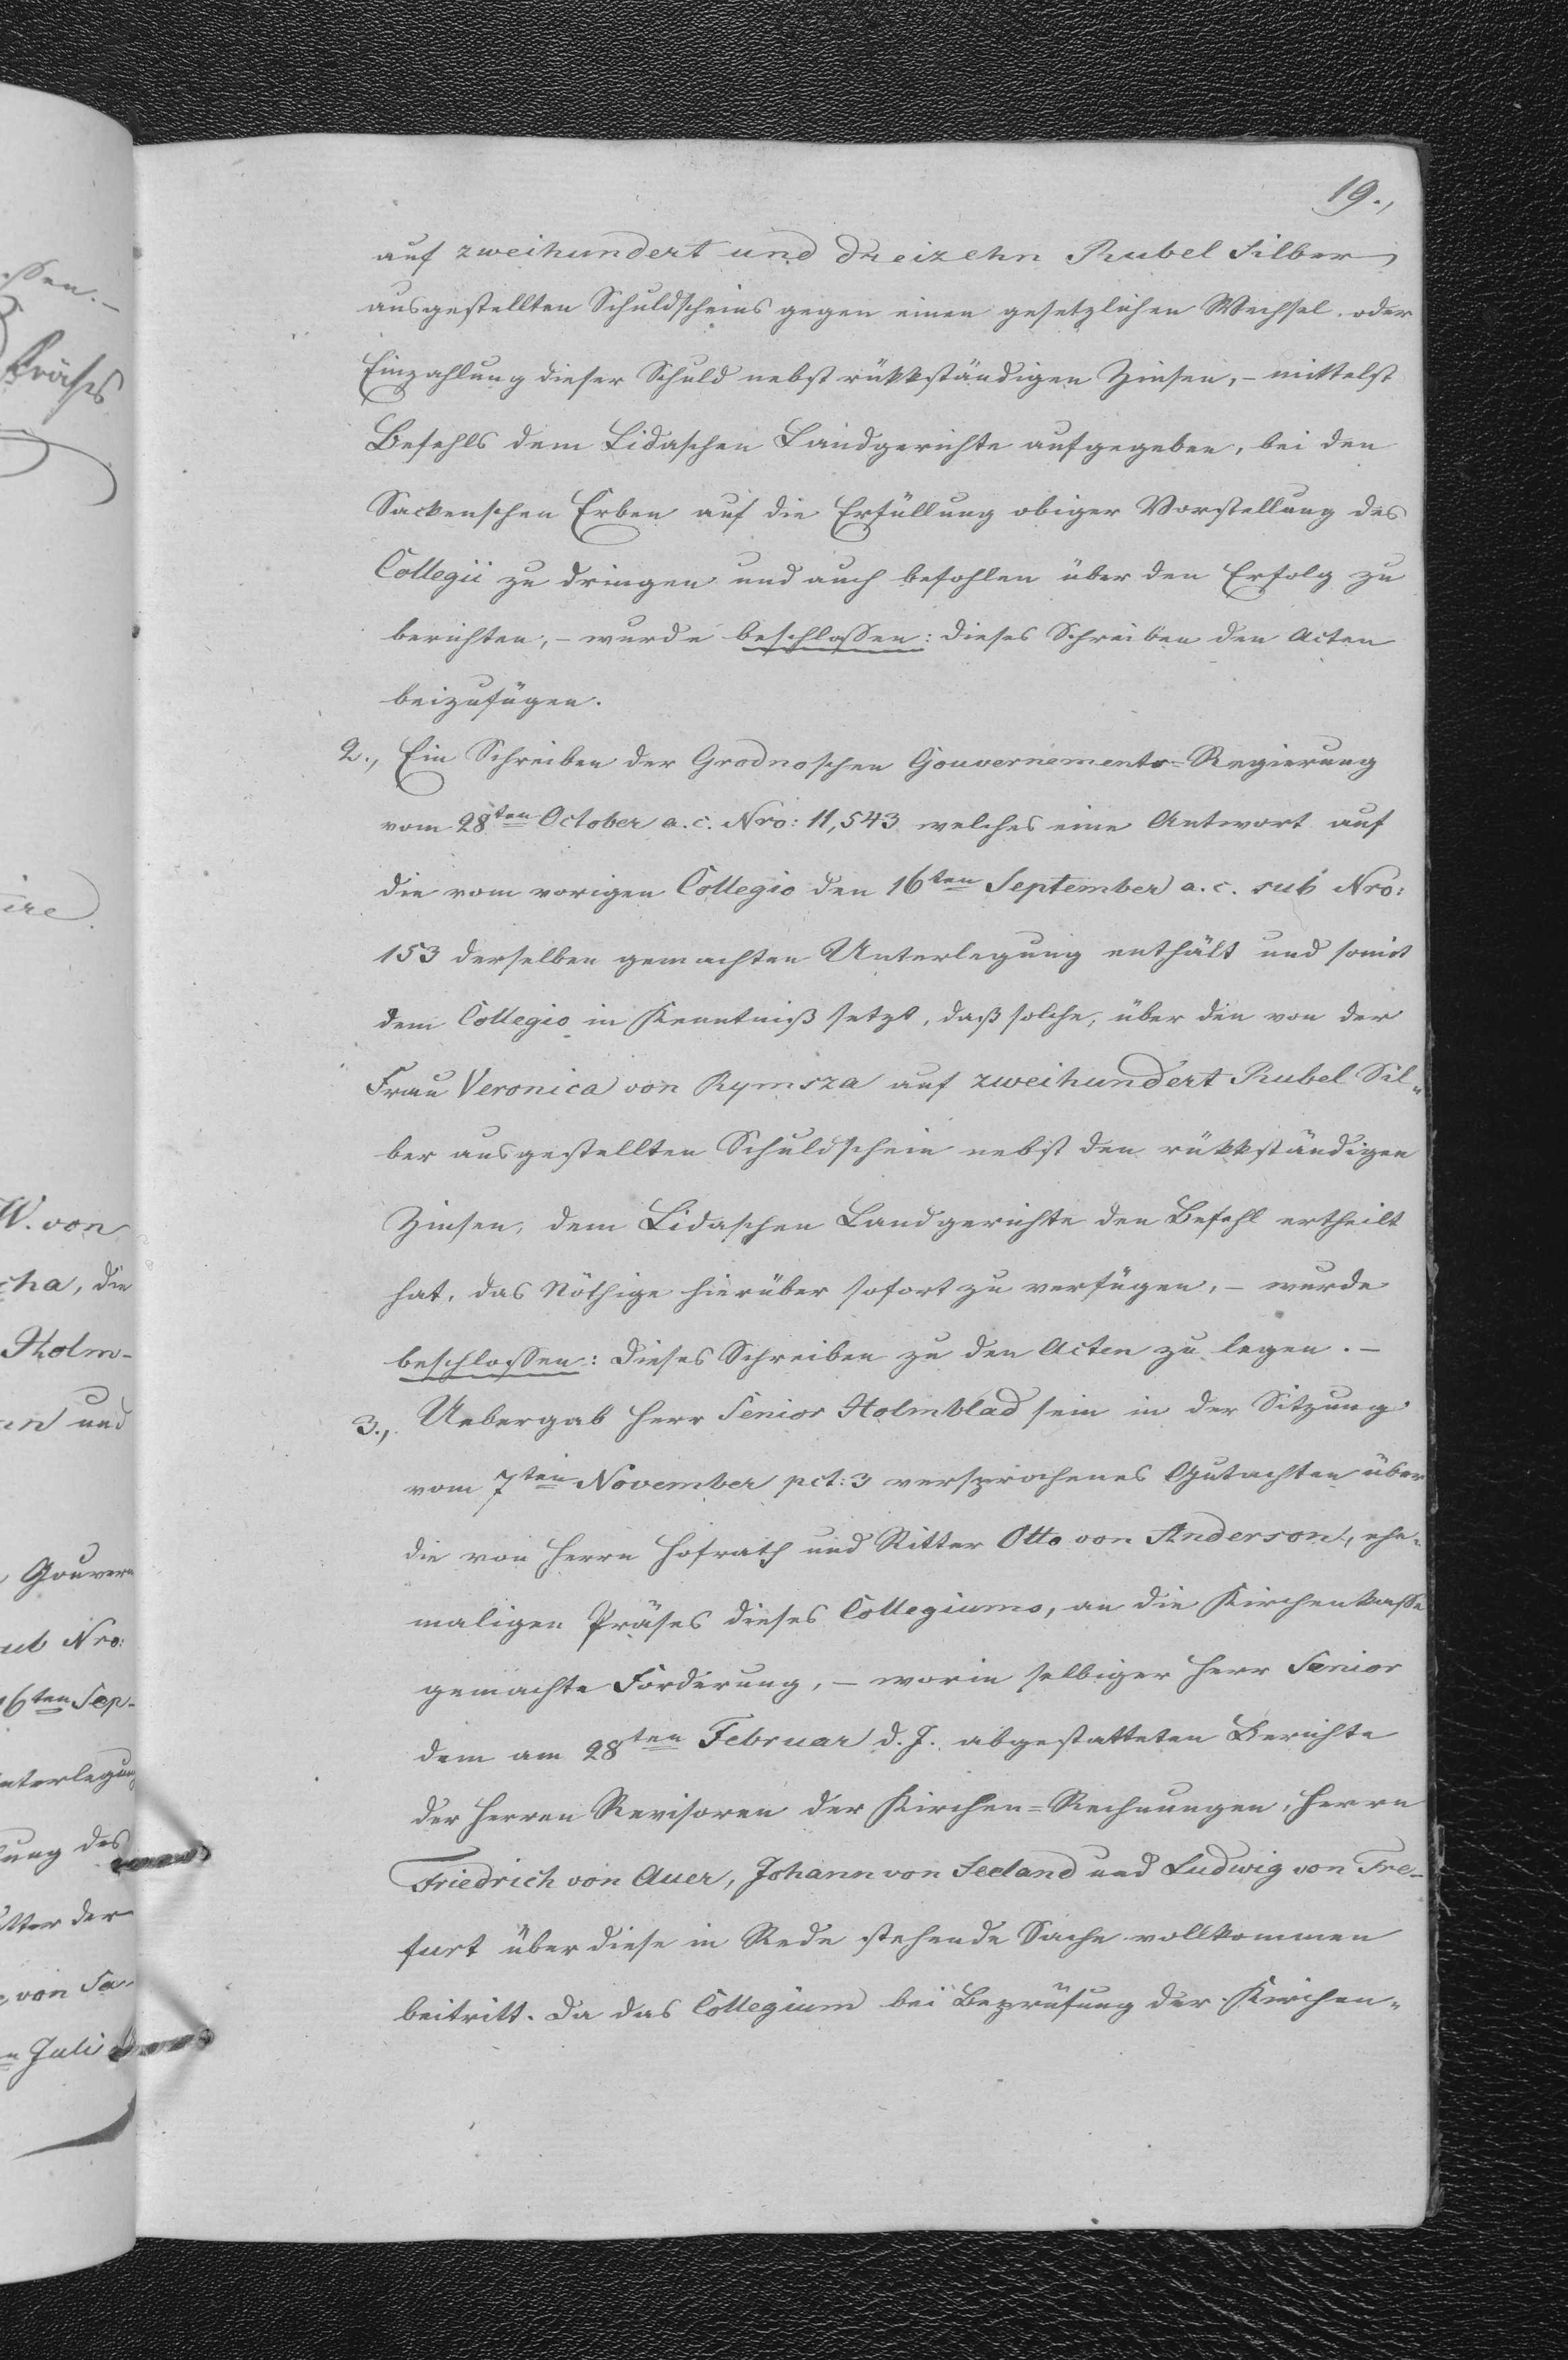 19.,
auf zweihundert und dreizehn Rubel Silber
ausgestellten Schuldscheins gegen einen gesetzlichen Wechsel oder
Einzahlung dieser Schuld nebst rükkständigen Zinsen, – mittelst
Befehls dem Lidaschen Landgerichte aufgegeben, bei den
Sackenschen Erben auf die Erfüllung obiger Vorstellung des
Collegii zu dringen und auch befohlen über den Erfolg zu
berichten, – wurde beschlossen: dieses Schreiben den Acten
beizufügen.
2., Ein Schreiben der Grodnoschen Gouvernements-Regierung
vom 28ten October a. c. Nro: 11,543 welches eine Antwort auf
die vom vorigen Collegio den 16ten September a. c. sub Nro:
153 derselben gemachten Unterlegung enthält und somit
dem Collegio in Kenntniß setzt, daß solche, über den von der
Frau Veronica von Rymsza auf zweihundert Rubel Sil-
ber ausgestellten Schuldschein nebst den rükkständigen
Zinsen, dem Lidaschen Landgerichte den Befehl ertheilt
hat, das Nöthige hierüber sofort zu verfügen, – wurde
beschlossen: dieses Schreiben zu den Acten zu legen. –
3., Uebergab Herr Senior Holmblad sein in der Sitzung
vom 7ten November pct: 3 versprochenes Gutachten über
die von Herrn Hofrath und Ritter Otto von Anderson, ehe-
maligen Präses dieses Collegiums, an die Kirchenkasse
gemachte Forderung, – worin selbiger Herr Senior
dem am 28ten Februar d. J. abgestatteten Berichte
der Herren Revisoren der Kirchen-Rechnungen, Herrn
Friedrich von Auer, Johann von Seeland und Ludwig von Tre-
furt über diese in Rede stehende Sache vollkommen
beitritt. Da das Collegium bei Beprüfung der Kirchen-
Präses
W. von
die
Holm-
und
Gouvern
Nro:
16ten Sep-
des
der
von Sa-
Juli